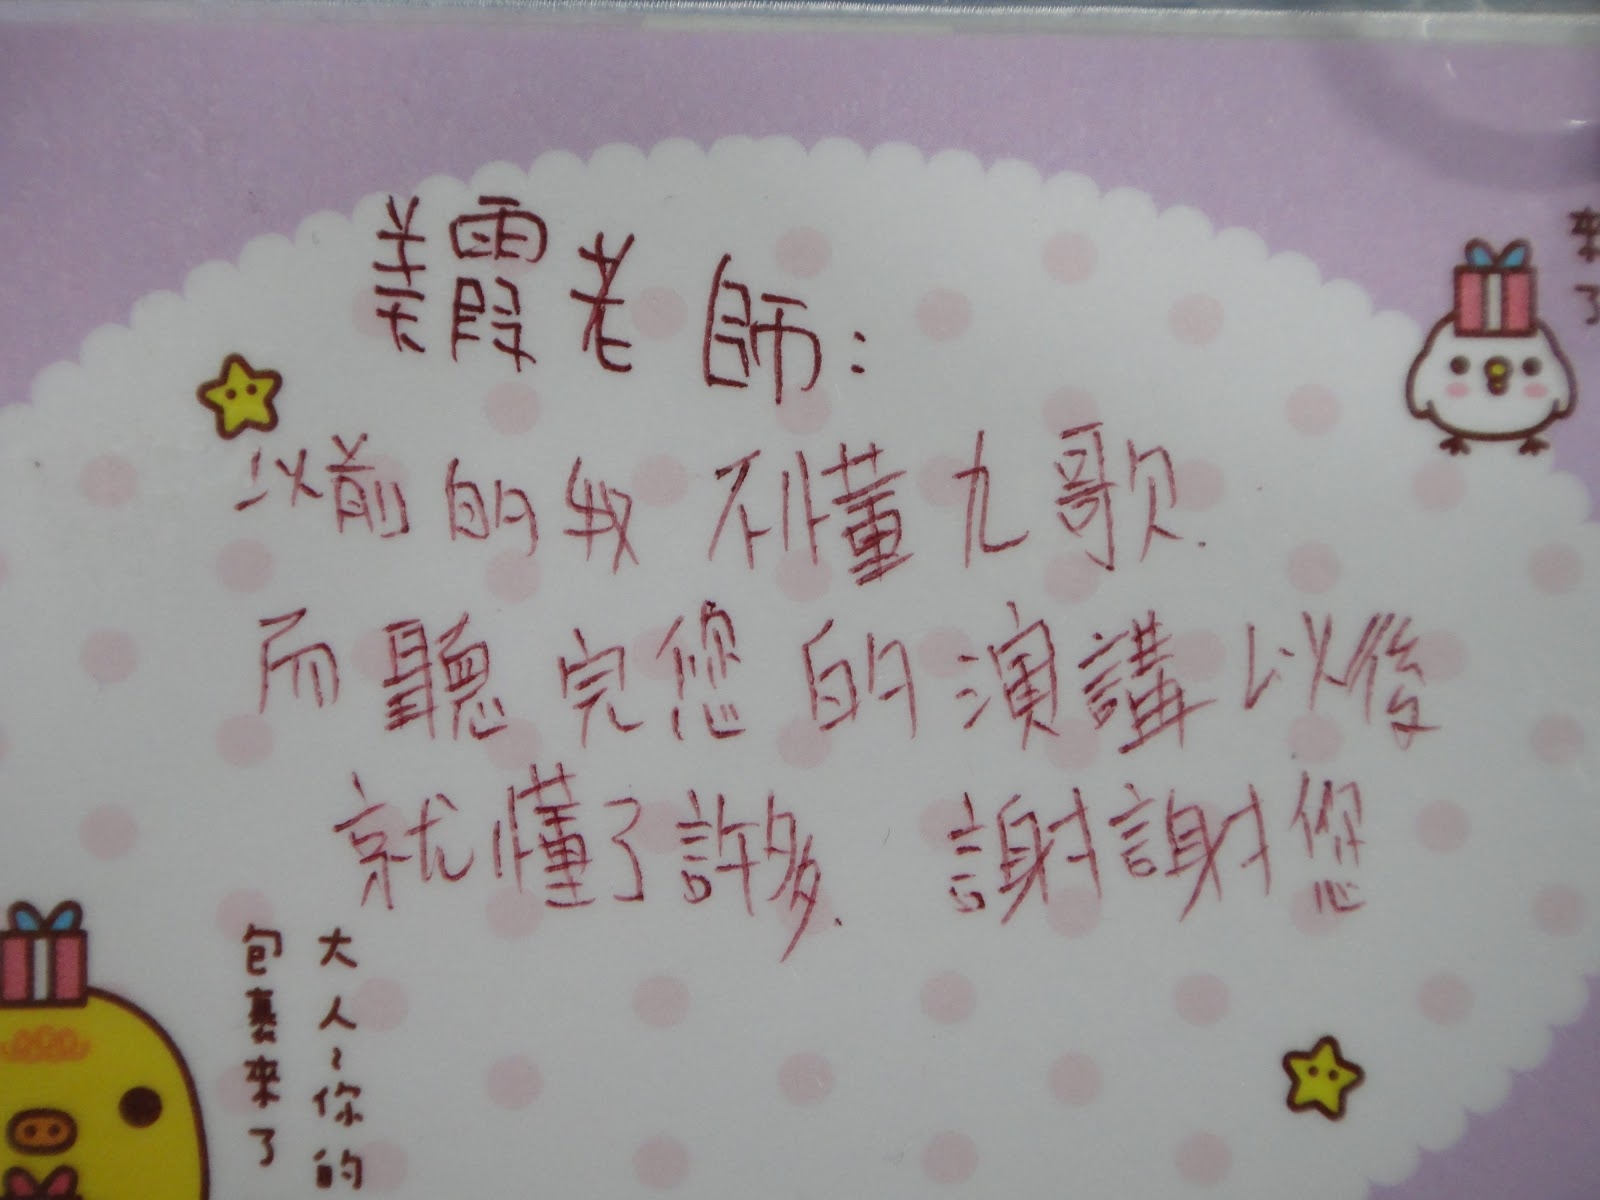 美霞老師：
以前的我不懂九歌.
而聽完您的演講以後
就懂了許多. 謝謝您
大人~你的
包裹來了
來
了